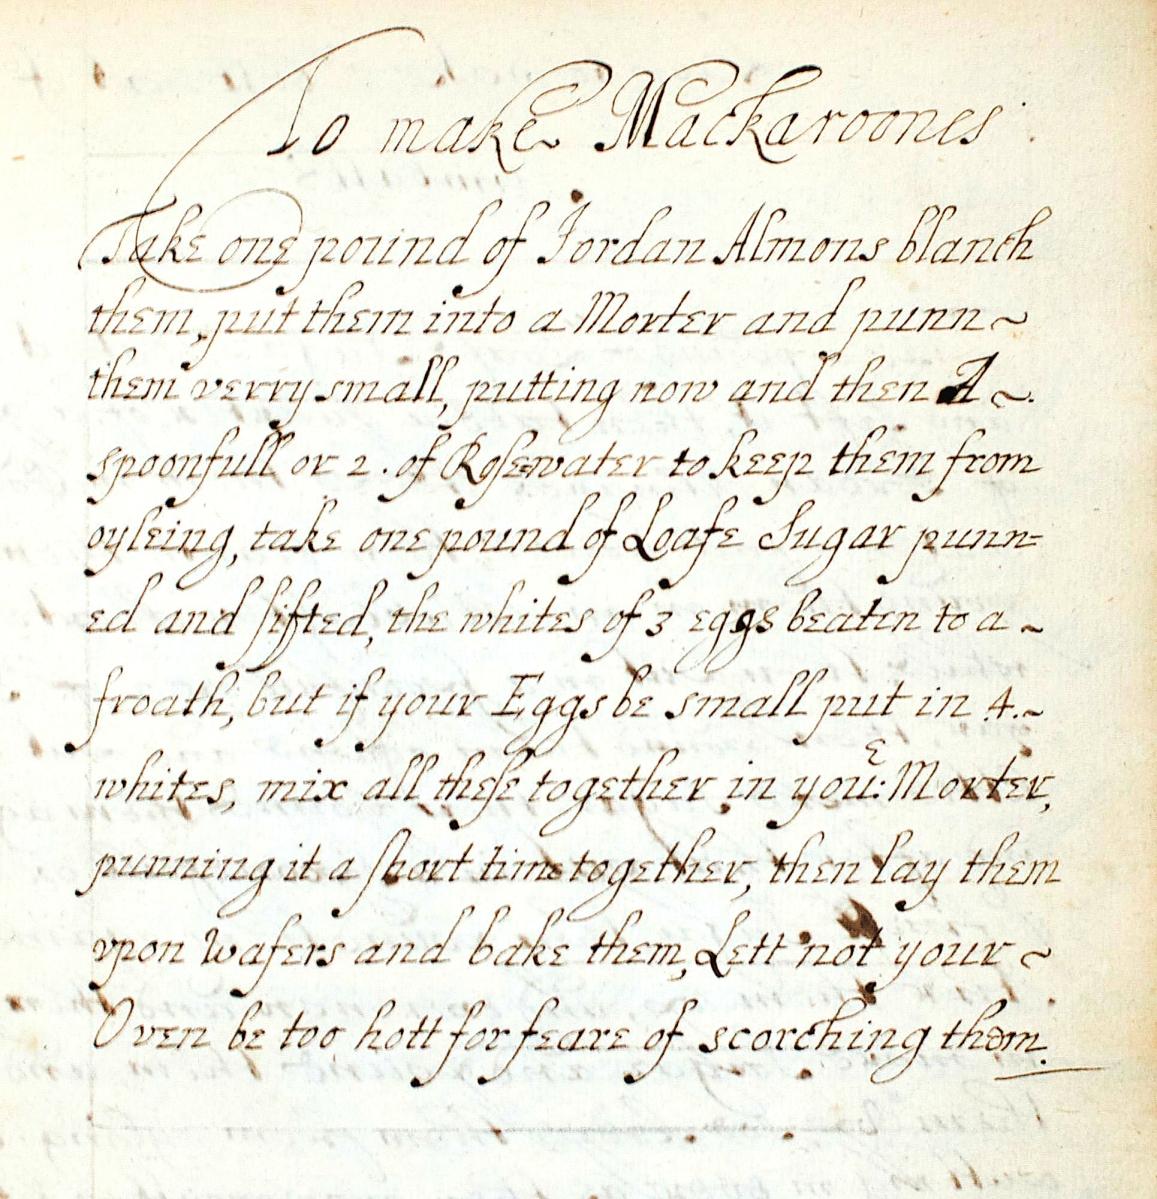 To make Mackaroones
Take one pound of Jordan Almons blanch
them, put them into a Morter and punn~
them verry small, putting now and then A ~.
spoonfull or 2. of Rose=water to keep them from
oyleing, take one pound of Loafe Sugar punn=
ed and sifted, the whites of 3 eggs beaten to a ~
froath, but if your Eggs be small put in 4.~
whites, mix all these together in youᵋ: Morter,
punning it a short time together, then lay them
vpon Wafers and bake them, Lett not your ~
Oven be too hott for feare of scorching them.